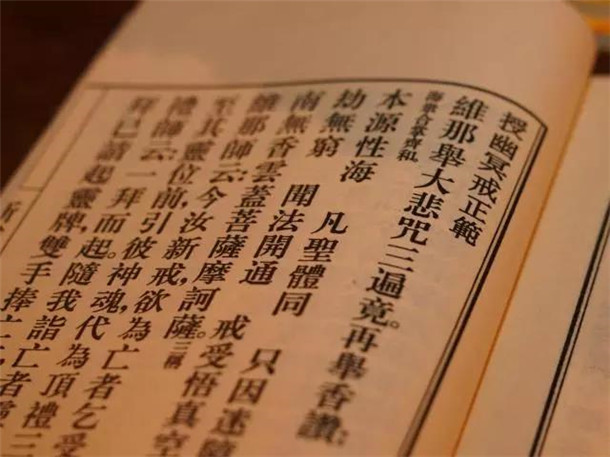 授幽冥戒正範
維那舉大悲咒三遍竟。再舉香讚:
海眾合掌齊和
本源性海　凡聖體同　只因迷隨
劫無窮　聞法開通　戒受悟真空
南無香雲蓋菩薩摩訶薩。三稱
維那師云:今汝新戒,欲為亡者乞受
至其靈位前,引彼神魂,代為頂禮三
禮師云:一拜而起。隨我詣亡者靈
拜已請起靈牌,雙手捧亡